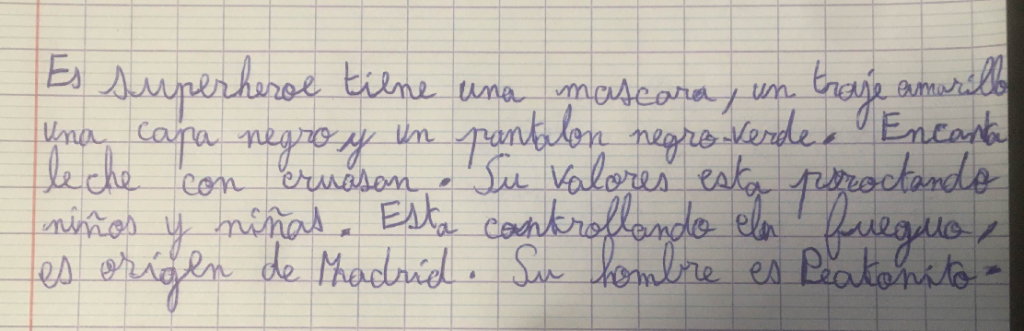 Es superheroe tiene una mascara, un traje amarillo
una capa negro y un pantalon negro-verde. Encanta
leche con cruasan. Su valores esta proctando
niños y niñas. Esta controllando eln fueguo,
es origen de Madrid. Su hombre es Peatonito.